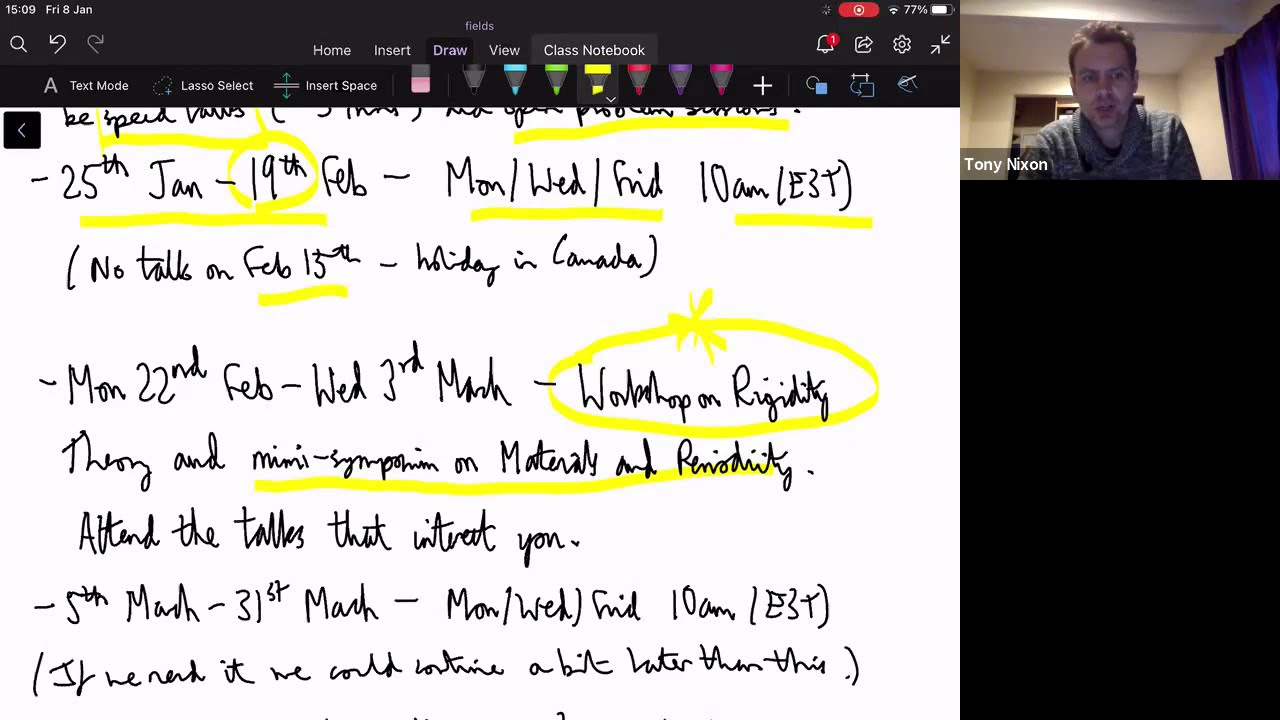 15:09 Fri 8 Jan
77%
fields
Home Insert Draw View Class Notebook
1
Text Mode Lasso Select Insert Space
be speed talks ( 5 mins) and open problem sessions.
- 25th Jan - 19th Feb - Mon/Wed/Frid 10am (EST)
(No talks on Feb 15th - holiday in Canada)
- Mon 22nd Feb - Wed 3rd March - Workshop on Rigidity
Theory and mini-symposium on Materials and Periodicity.
Attend the talks that interest you.
- 5th March - 31st March - Mon/Wed/Frid 10am (EST)
(If we need it we could continue a bit later than this.)
Tony Nixon